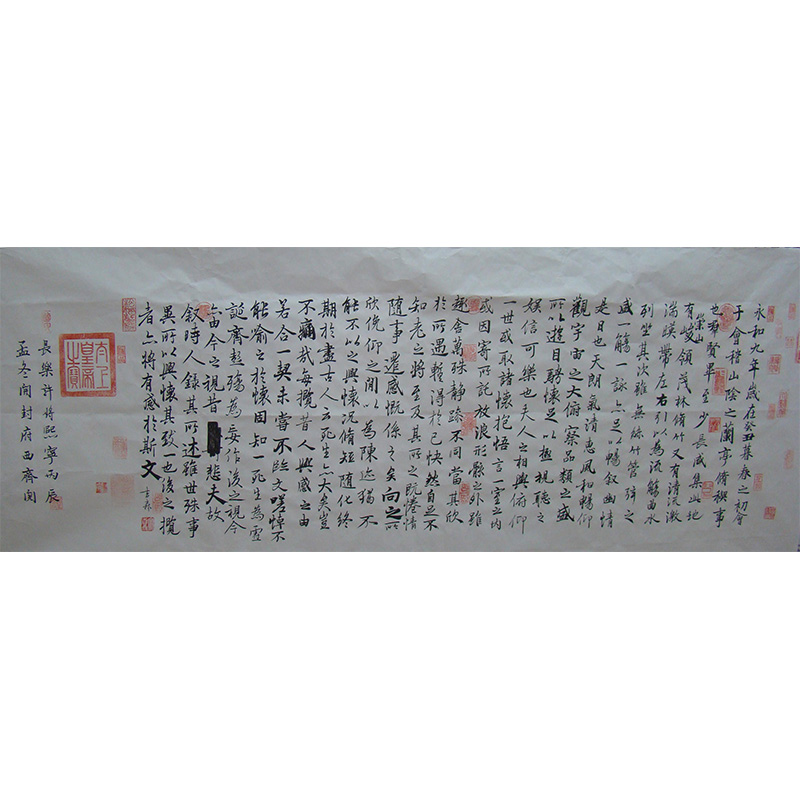 永和九年歲在癸丑暮春之初會
于會稽山陰之蘭亭脩稧事
也羣賢畢至少長咸集此地
有崇山峻領茂林脩竹又有清流激
湍暎帶左右引以為流觴曲水
列坐其次雖無絲竹管弦之
盛一觴一詠亦足以暢敘幽情
是日也天朗氣清惠風和暢仰
觀宇宙之大俯察品類之盛
所以遊目騁懷足以極視聽之
娛信可樂也夫人之相與俯仰
一世或取諸懷抱悟言一室之內
或因寄所託放浪形骸之外雖
趣舍萬殊靜躁不同當其欣
於所遇暫得於己快然自足不
知老之將至及其所之既惓情
隨事遷感慨係之矣向之所
欣俛仰之閒以為陳迹猶不
能不以之興懷況脩短隨化終
期於盡古人云死生亦大矣豈
不痛哉每攬昔人興感之由
若合一契未嘗不臨文嗟悼不
能喻之於懷固知一死生為虛
誕齊彭殤為妄作後之視今
亦由今之視昔悲夫故
敘時人錄其所述雖世殊事
異所以興懷其致一也後之攬
者亦將有感於斯文
太上皇帝之寶
長樂許將熙寧丙辰
孟冬開封府西齋閱